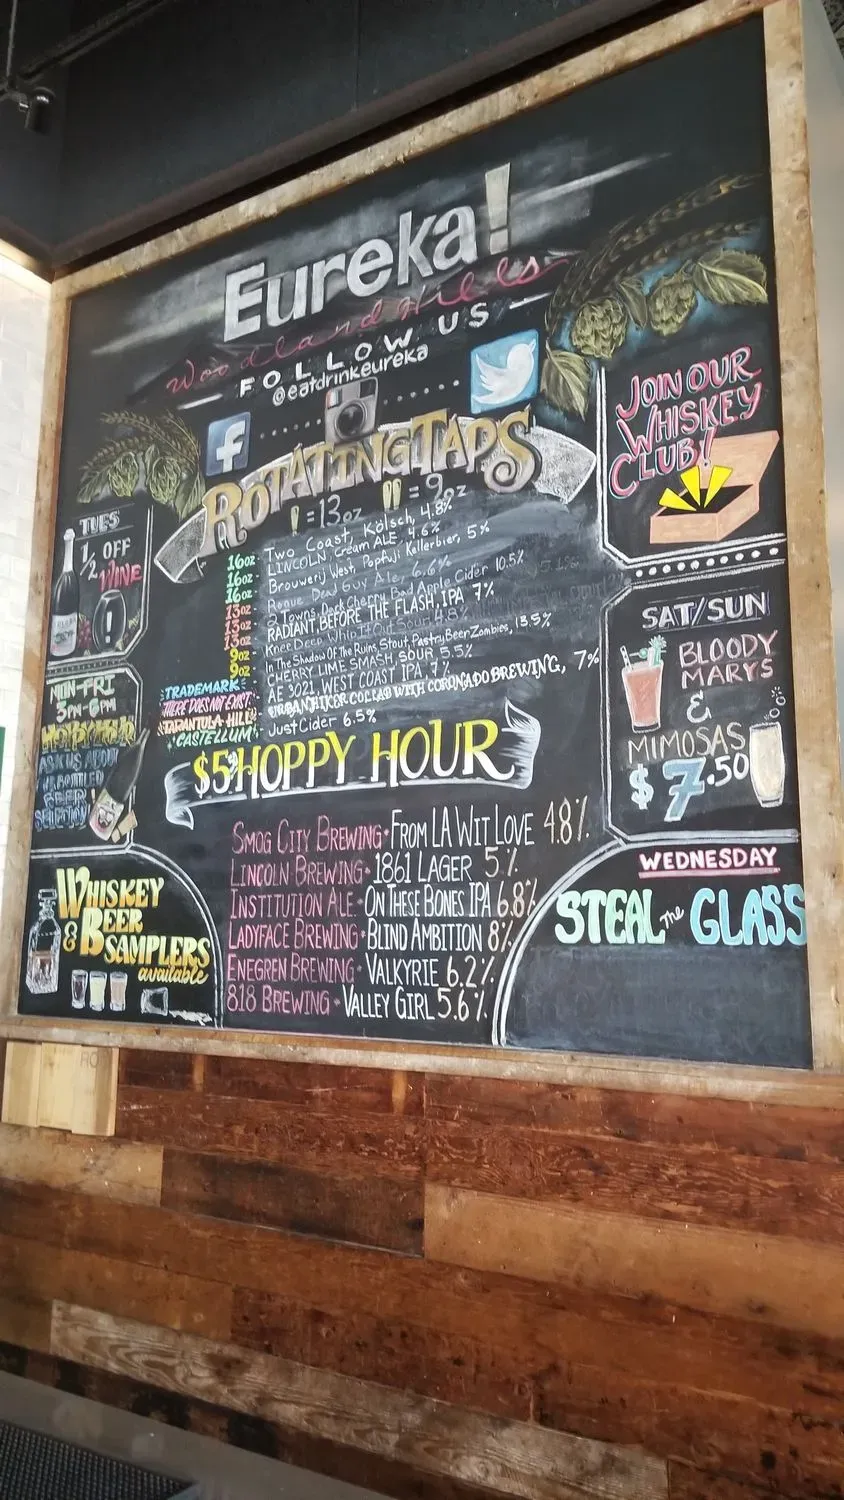 Eureka!
Woodland Hills
FOLLOW US
@eatdrinkeureka
f
ROTATING TAPS
=13oz =9oz
16oz - Two Coast, Kölsch, 4.8%
16oz - LINCOLN, Cream ALE, 4.6%
16oz - Brouwerij West, Popfuji Kellerbier, 5%
13oz - Rogue Dead Guy Ale, 6.6%
13oz - 2 Towns, Dark Cherry, Bad Apple Cider 10.5%
13oz - RADIANT BEFORE THE FLASH, IPA 7%
13oz - Knee Deep Whip It Out Sour 4.8%
9oz - In The Shadow Of The Ruins Stout, Pastry Beer Zombies, 13.5%
9oz - CHERRY LIME SMASH, SOUR, 5.5%
TRADEMARK - AF 3021, WEST COAST IPA, 7%
THERE DOES NOT EXIST - URBAN HIKER COLLAB WITH CORONADO BREWING, 7%
TARANTULA HILL -
CASTELLUM - Just Cider 6.5%
$5 HOPPY HOUR
SMOG CITY BREWING • FROM LA WIT LOVE 4.8%
LINCOLN BREWING • 1861 LAGER 5%
INSTITUTION ALE • ON THESE BONES IPA 6.8%
LADYFACE BREWING • BLIND AMBITION 8%
ENEGREN BREWING • VALKYRIE 6.2%
818 BREWING • VALLEY GIRL 5.6%
TUES
1/2 OFF
WINE
MON-FRI
3PM-6PM
HOPPY HOUR
ASK US ABOUT
BOTTLED
BEER
SELECTION
WHISKEY
& BEER
SAMPLERS
available
JOIN OUR
WHISKEY
CLUB!
SAT/SUN
BLOODY
MARYS
&
MIMOSAS
$7.50
WEDNESDAY
STEAL the GLASS